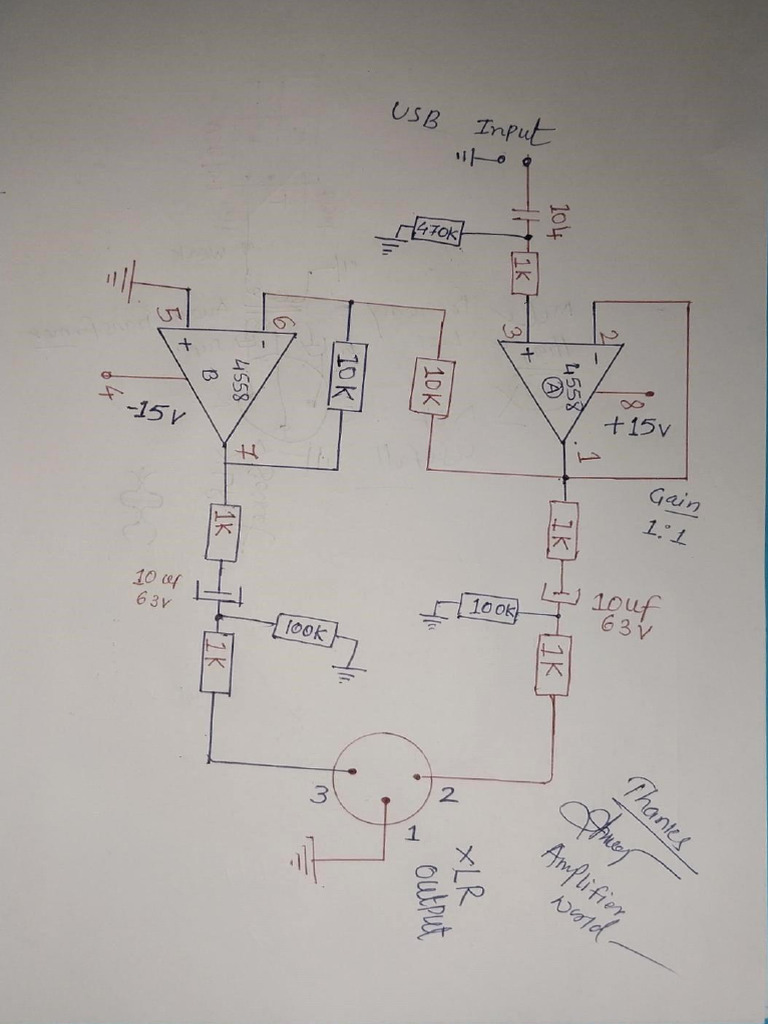 USB Input
104
470K
1K
3
2
+
-
4558
A
8
+15v
1
Gain
1:1
5
6
+
-
4558
B
4
-15v
7
10K
10K
1K
1K
10uf
63v
10uf
63v
100K
100K
1K
1K
3
2
1
XLR
output
Thanks
Amplifier
World